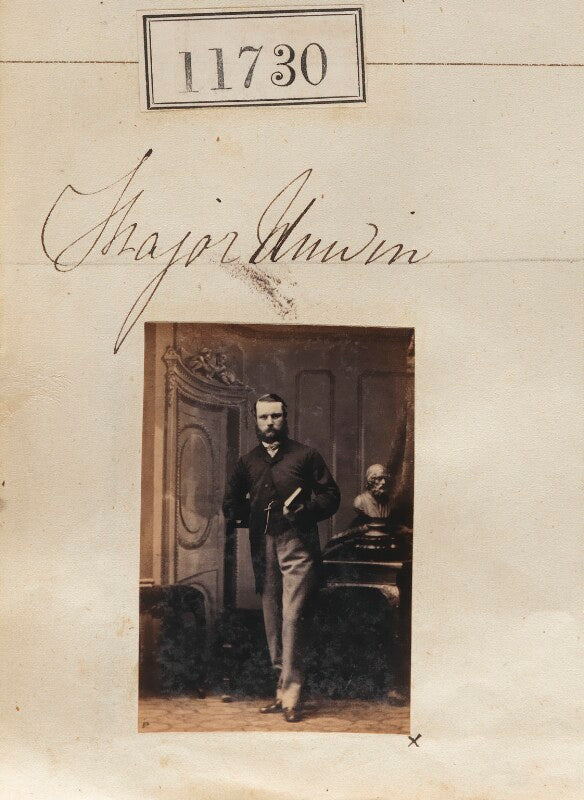 11730
Major Unwin
x